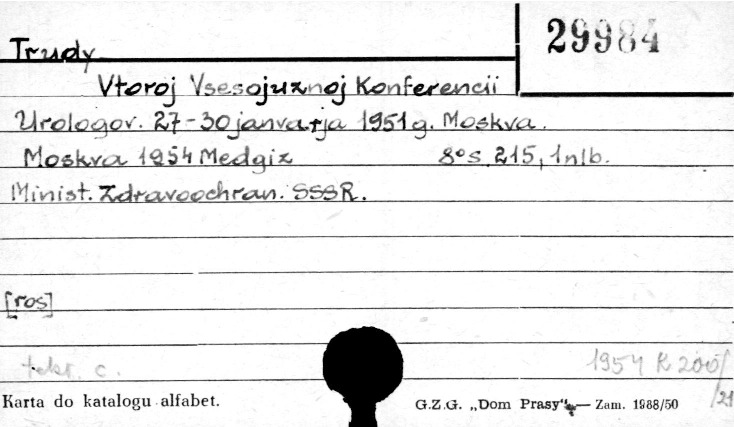 29984
Trudy
Vtoroj Vsesojuznoj Konferencii
Urologov. 27-30 janvarja 1951 g. Moskva.
Moskva 1954 Medgiz 8° s. 215, 1 nlb.
Minist. Zdravoochran. SSSR.
[ros]
1954 R 200/
/21
Karta do katalogu alfabet.
G.Z.G. „Dom Prasy" — Zam. 1988/50